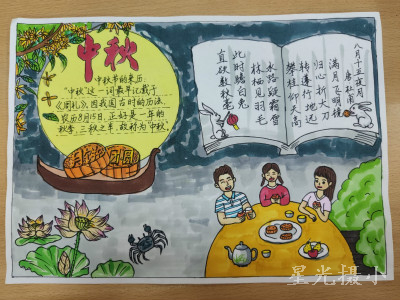 中秋
中秋节的来历:
"中秋"这一词最早记载于
《周礼》,因我国古时的历法,
农历8月15日,正好是一年的
秋季,三秋之半,故称为"中秋"。
团圆
八月十五夜月
唐 杜甫
满月飞明镜
归心折大刀
转蓬行地远
攀桂仰天高
水路疑霜雪
林栖见羽毛
此时瞻白兔
直欲数秋毫
星光摄小